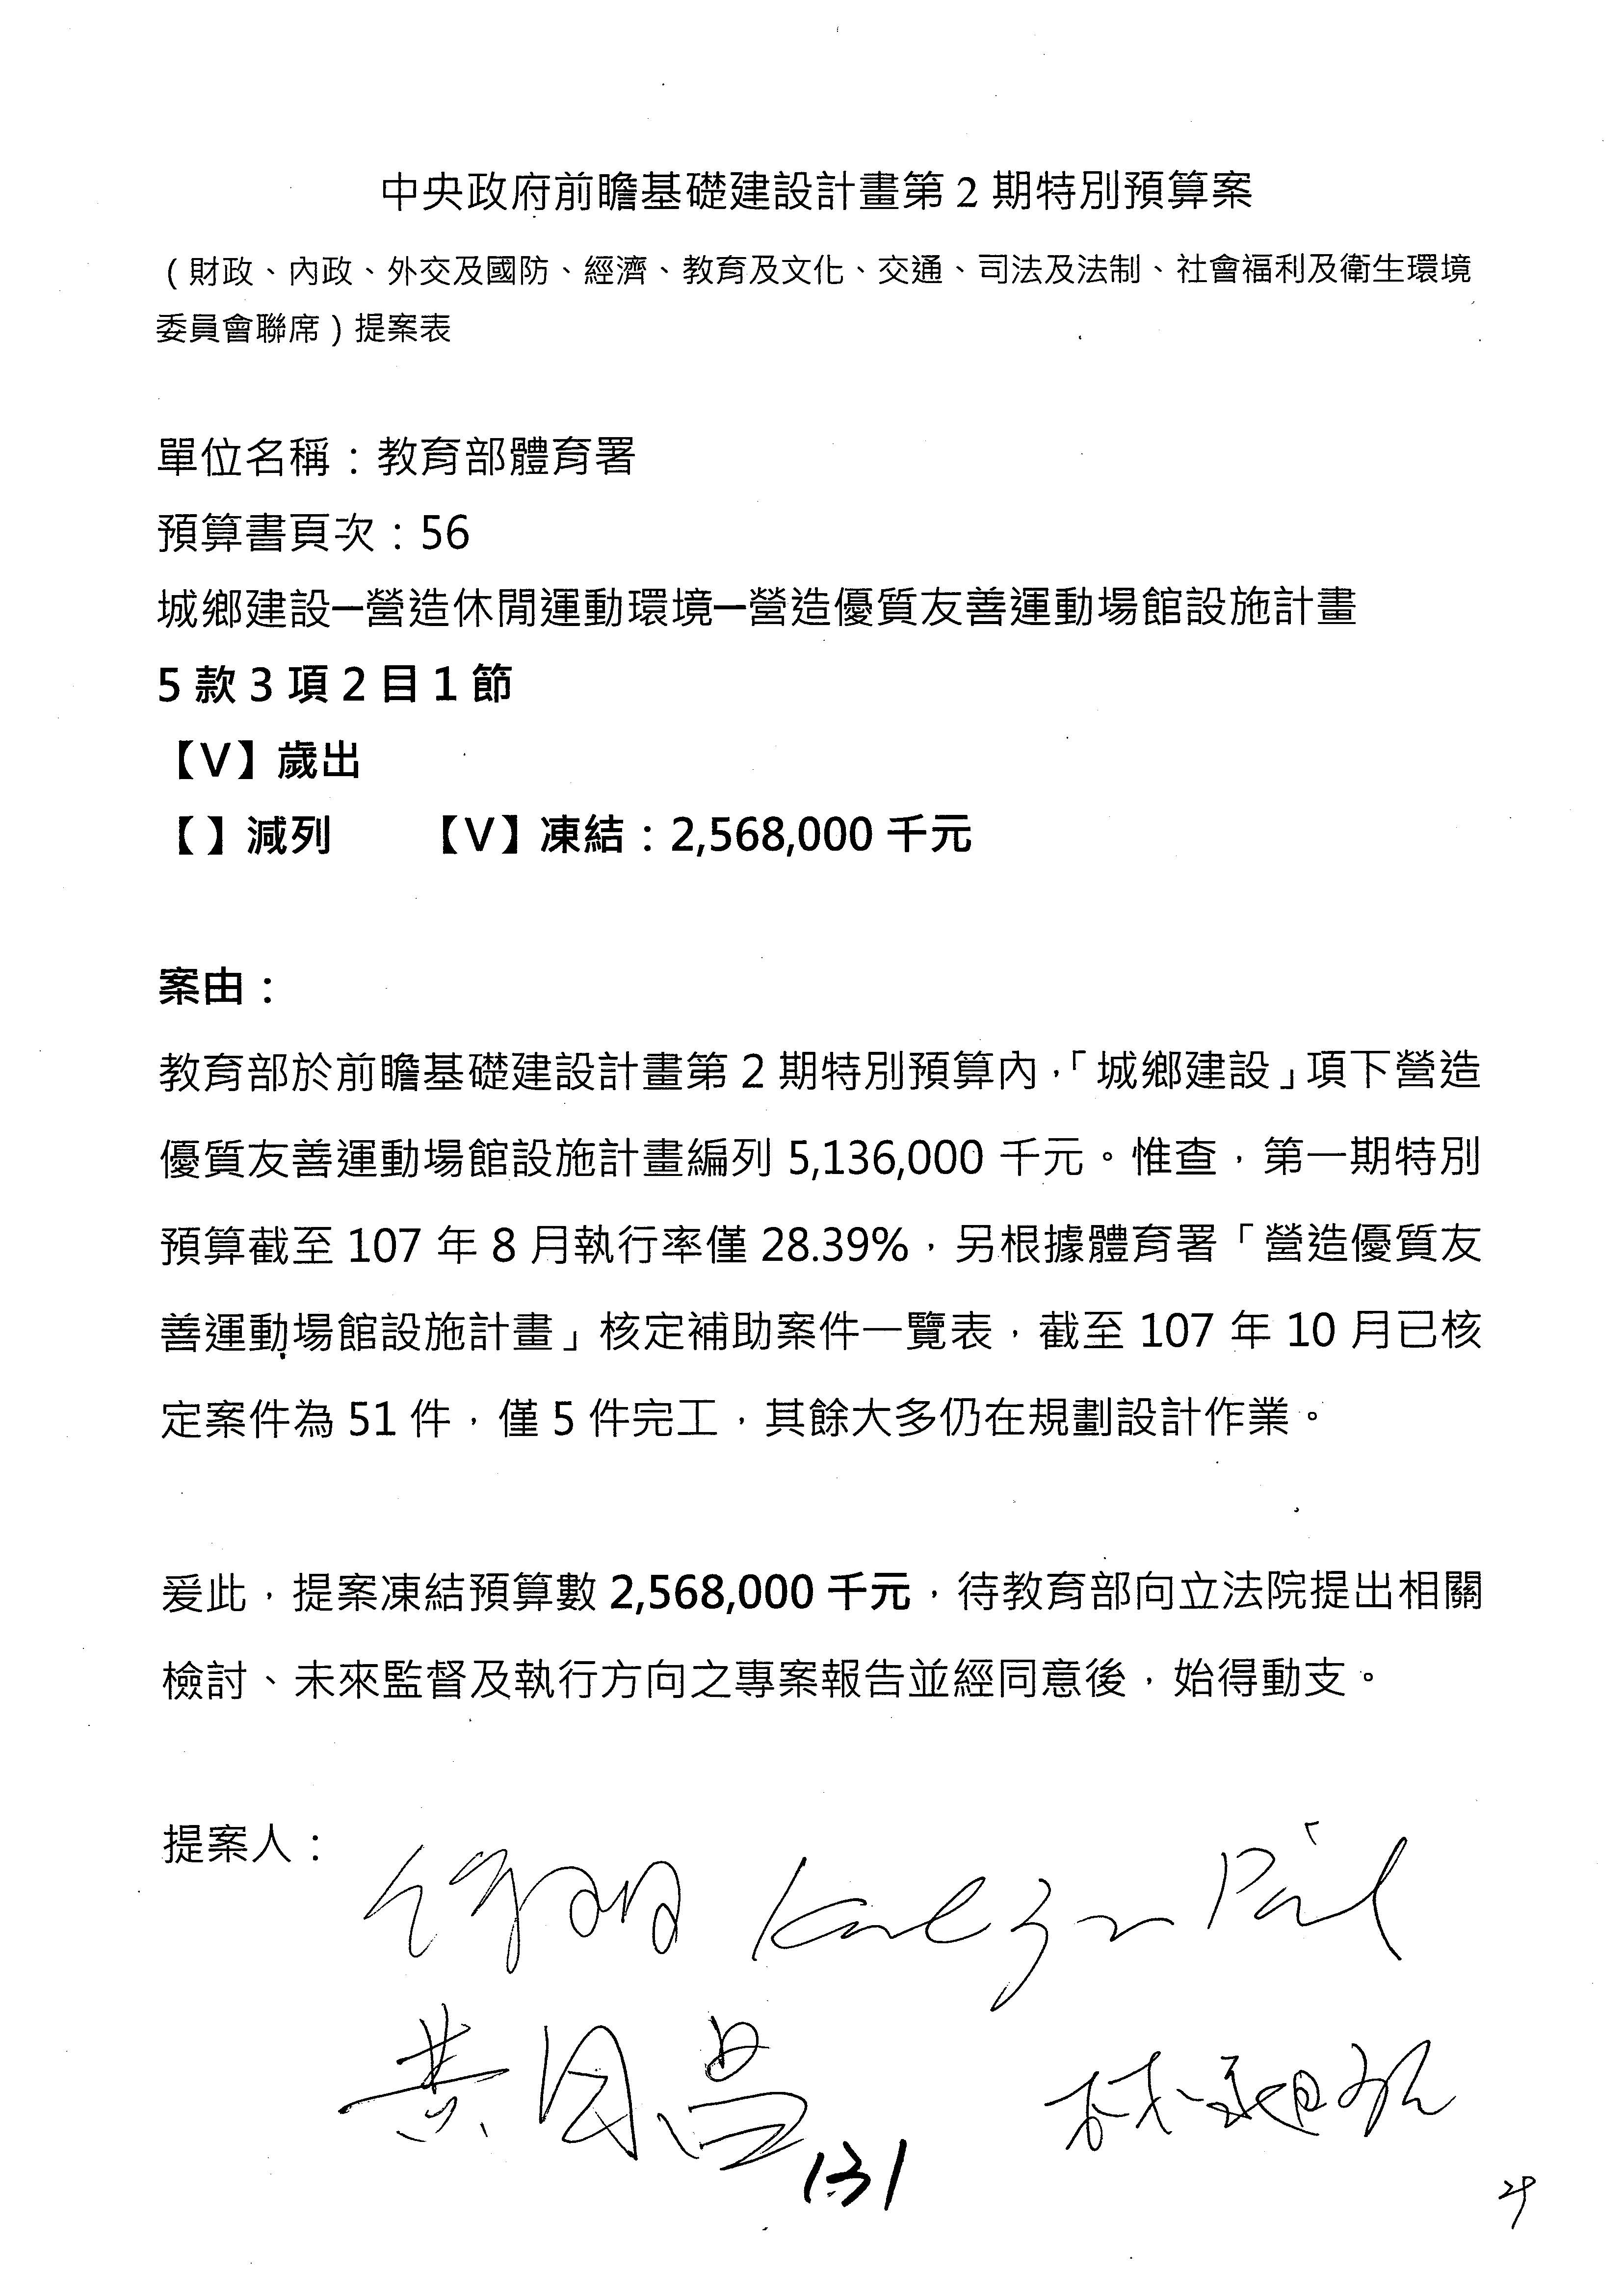 中央政府前瞻基礎建設計畫第 2 期特別預算案
（財政、內政、外交及國防、經濟、教育及文化、交通、司法及法制、社會福利及衛生環境
委員會聯席）提案表
單位名稱：教育部體育署
預算書頁次：56
城鄉建設—營造休閒運動環境—營造優質友善運動場館設施計畫
5 款 3 項 2 目 1 節
【V】歲出
【 】減列 【V】凍結：2,568,000 千元
案由：
教育部於前瞻基礎建設計畫第 2 期特別預算內，「城鄉建設」項下營造
優質友善運動場館設施計畫編列 5,136,000 千元。惟查，第一期特別
預算截至 107 年 8 月執行率僅 28.39%，另根據體育署「營造優質友
善運動場館設施計畫」核定補助案件一覽表，截至 107 年 10 月已核
定案件為 51 件，僅 5 件完工，其餘大多仍在規劃設計作業。
爰此，提案凍結預算數 2,568,000 千元，待教育部向立法院提出相關
檢討、未來監督及執行方向之專案報告並經同意後，始得動支。
提案人：
黃國昌
131